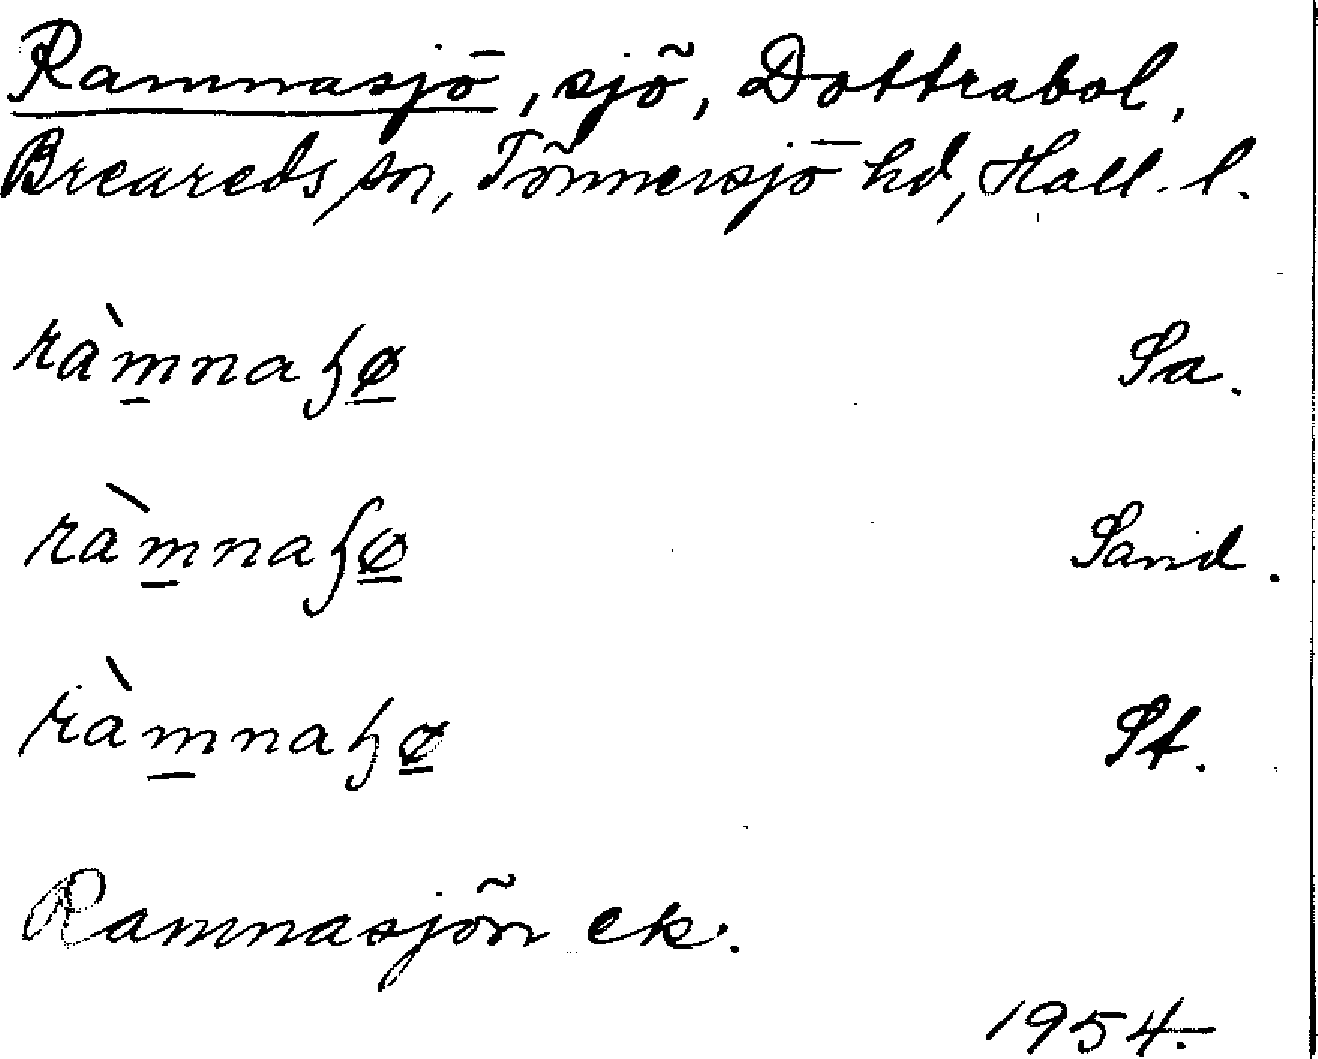 Ramnasjö, sjö, Dottrabol,
Breareds sn, Tönnersjö hd, Hall. l.
ràm̲naɧø̲ Sa.
ràm̲naɧø̲ Sand.
ràm̲naɧø̲ St.
Ramnasjön ek.
1954.